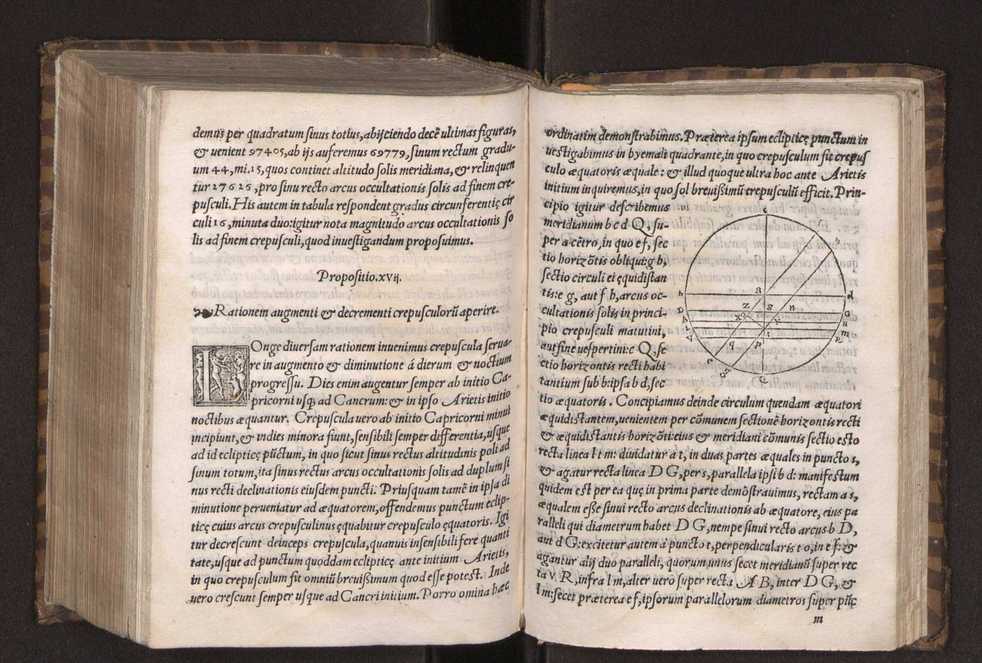 demus per quadratum sinus totius, abijciendo decē ultimas figuras,
& uenient 97405, ab ijs auferemus 69779, sinum rectum gradu-
um 44, mi.15, quos continet altitudo solis meridiana, & relinquen
tur 27626, pro sinu recto arcus occultationis solis ad finem cre-
pusculi. His autem in tabula respondent gradus circunferentię cir
culi 16, minuta duo: igitur nota magnitudo arcus occultationis so
lis ad finem crepusculi, quod inuestigandum proposuimus.
Propositio.xvij.
Rationem augmenti & decrementi crepusculorū aperire.
LOnge diuersam rationem inuenimus crepuscula serua
re in augmento & diminutione á dierum & noctium
progressu. Dies enim augentur semper ab initio Ca-
pricorni usq; ad Cancrum: & in ipso Arietis initio
noctibus æquantur. Crepuscula uero ab initio Capricorni minui
incipiunt, & indies minora fiunt, sensibili semper differentia, usque
ad id eclipticę pūctum, in quo sicut sinus rectus altitudinis poli ad
sinum totum, ita sinus rectus arcus occultationis solis ad duplum si
nus recti declinationis eiusdem puncti. Priusquam tamē in ipsa di
minutione perueniatur ad æquatorem, offendemus punctum eclip-
ticę cuius arcus crepusculinus ęquabitur crepusculo ęquatoris. Igi
tur decrescunt deinceps crepuscula, quamuis insensibili fere quanti
tate, usque ad punctum quoddam eclipticę ante initium Arietis,
in quo crepusculum fit omniū breuissimum quod esse potest. Inde
uero crescunt semper usque ad Cancri initium. Porro omnia hæc
ordinatim demonstrabimus. Præterea ipsum eclipticę punctum in
uestigabimus in hyemali quadrante, in quo crepusculum fit crepus
culo æquatoris æquale: & illud quoque ultra hoc ante Arietis
initium inquiremus, in quo sol breuissimū crepusculū efficit. Prin-
cipio igitur describemus
meridianum b c d Q, su-
per a cētro, in quo e f, sec
tio horizōtis obliqui: g h,
sectio circuli ei ęquidistan
tis: e g, aut f h, arcus oc-
cultationis solis in princi-
pio crepusculi matutini,
aut fine uespertini: c Q, se
ctio horizontis recti habi
tantium sub k: ipsa b d, sec
tio æquatoris. Concipiamus deinde circulum quendam æquatori
æquidistantem, uenientem per cōmunem sectionē horizontis recti
& æquidistantis horizōti: eius & meridiani cōmunis sectio esto
recta linea l t m: diuidatur a t, in duas partes æquales in puncto s,
& agatur recta linea D G, per s, parallela ipsi b d: manifestum
quidem est per ea quę in prima parte demōstrauimus, rectam a s,
æqualem esse sinui recto arcus declinationis ab æquatore, eius pa
ralleli qui diametrum habet D G, nempe sinui recto arcus b D,
aut d G: excitetur autem á puncto t, perpendicularis t o, in e f: &
agantur alij duo paralleli, quorum unus secet meridianū super rec
ta v R, infra l m, alter uerò super recta A B, inter D G, &
l m: secet præterea e f, ipsorum parallelorum diametros super pūc
m